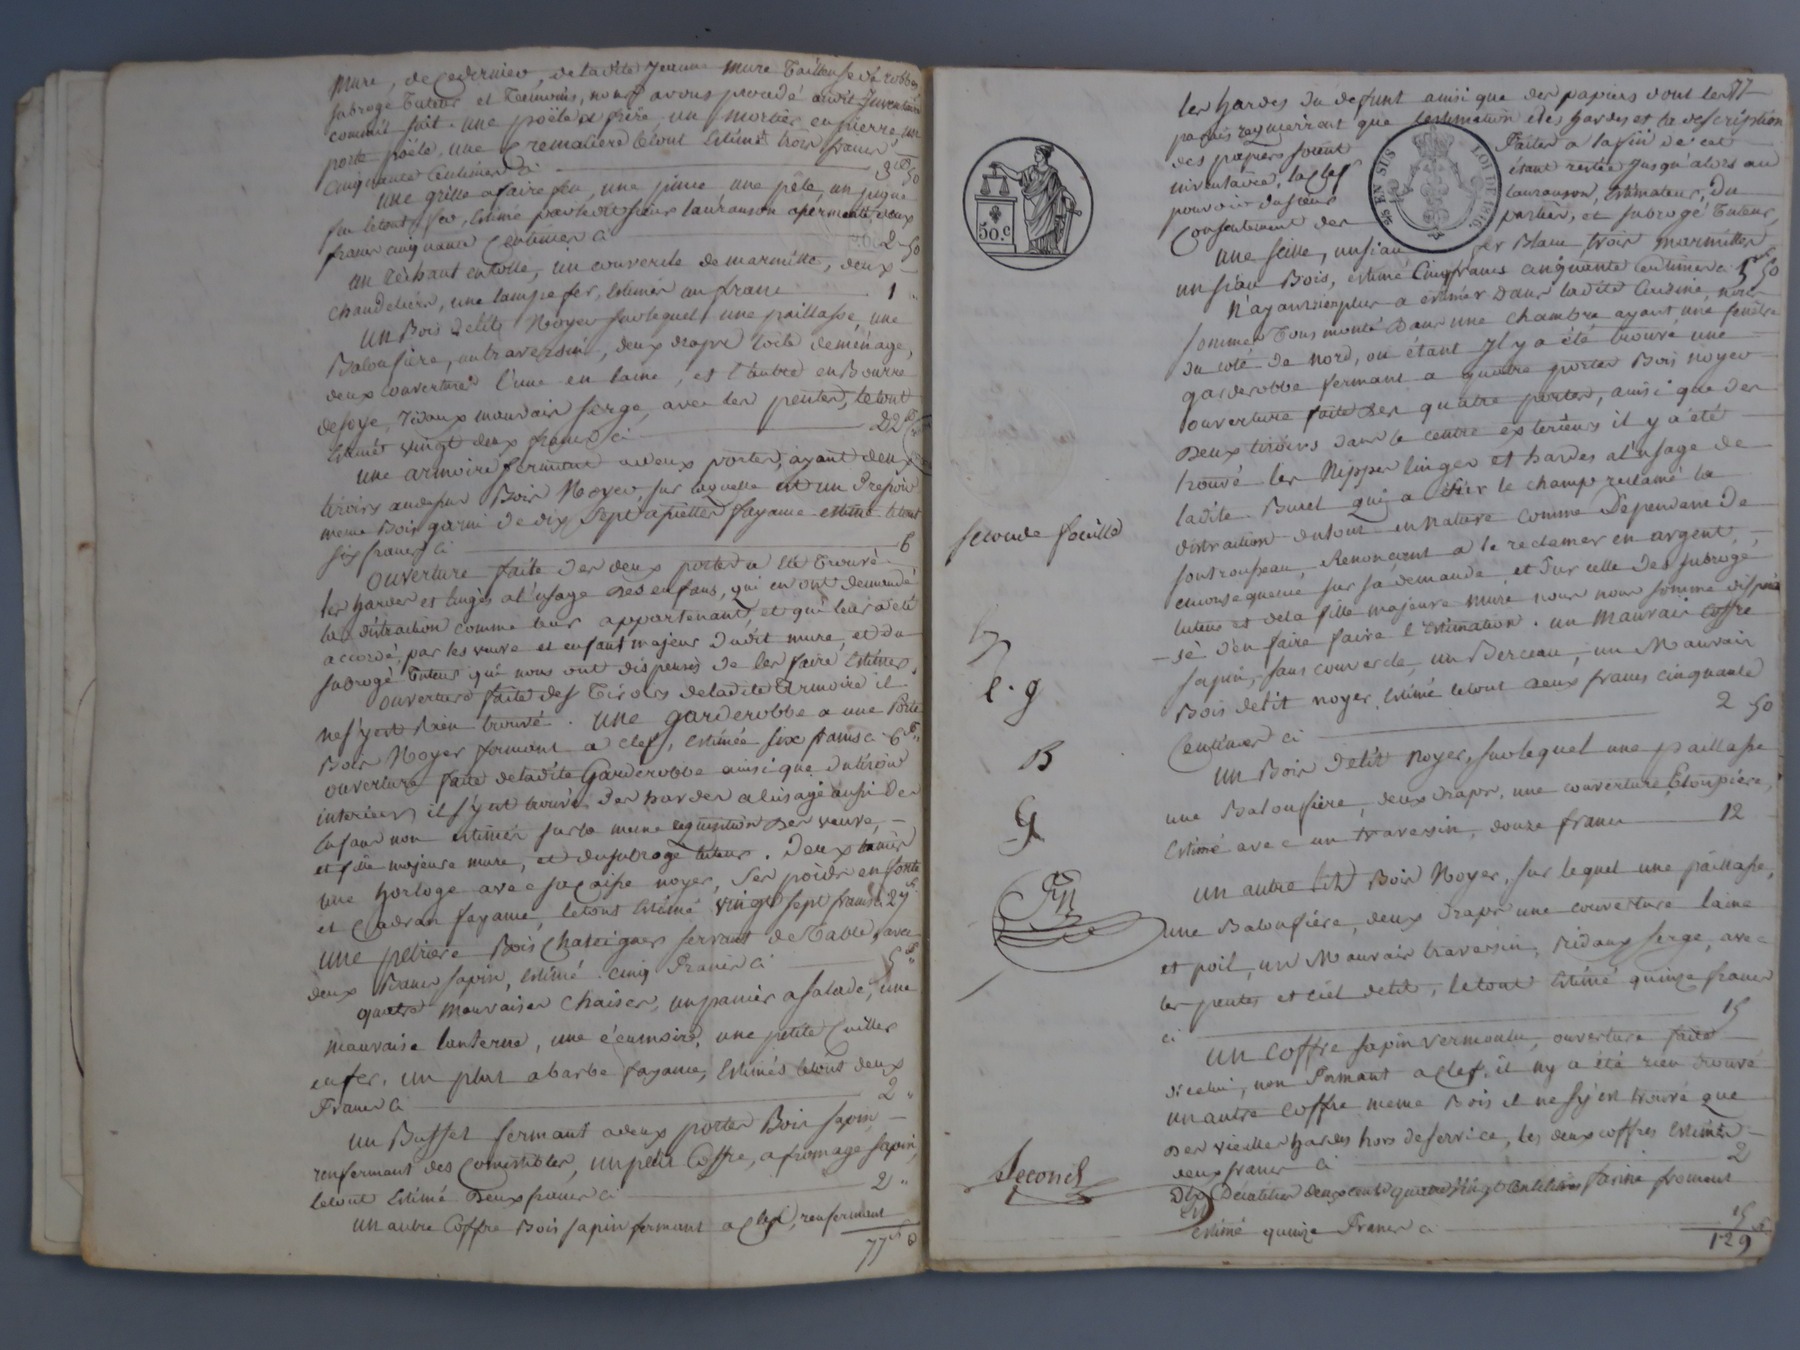 mure, de ce dernier, de ladite Jeanne mure Tailleuse de robbes
subrogé tuteur et Témoins, nous avons procédé audit Inventaire
comme suit. une poële a frire un mortier en pierre, un
porte poële, une cremaliere letout Estimés trois francs
Cinquante Centimes Ci 3 50
une grille a faire feu, une pince une pêle, un pique
feu letout fer, Estimé par ledit sieur Lauranson apermenté, deux
francs cinquante Centimes Ci 2 50
un réchaut en tolle, un couvercle de marmitte, deux
chandeliers, une lampe fer, Estimés un franc 1 "
un Bois delit Noyer sur lequel une paillasse, une
Baloufière, un traversin, deux draps toile de ménage,
deux couvertures l'une en laine, et l'autre en Bourre
de soye, ridaux mauvais serge, avec les pentes, letout
Estimés vingt deux francs Ci 22
une armoire fermant a deux portes, ayant deux
tiroirs au dessus Bois Noyer, sur laquelle est un Drepoir
meme Bois garni de dix sept assiettes fayance estimé letout
six francs Ci 6
ouverture faite des deux portes a été trouvé
les hardes et linges a l'usage des enfans, qui en ont demandé
la distraction comme leur appartenant, et qui leur a été
accordé, par les veuve et enfant majeur dudit mure, et du
subrogé Tuteur qui nous ont dispensés de les faire Estimer.
ouverture faite des Tiroirs de ladite Armoire il
ne s'y est Rien trouvé. une garderobbe a une Porte
Bois Noyer fermant a clef, Estimée six francs Ci 6 "
ouverture faite de ladite Garderobbe ainsi que du tiroir
interieur, il s'y est trouvé des hardes a l'usage aussi des
Enfans non estimés sur la meme requisition des veuve,
et fille majeure mure, et du subrogé tuteur. Deux
une horloge avec sa caisse noyer, ses poids en fonte
et Cadran fayance, letout Estimé vingt sept francs 27
une pétrière Bois Chateigner servant de Table, avec
deux Bancs sapin, Estimé cinq francs Ci 5 "
quatre mauvaises Chaises, un panier a salade, une
mauvaise lanterne, une écumoire, une petite Cuiller
en fer, un plat a barbe fayance, Estimés letout deux
Francs Ci 2 "
un Buffet fermant a deux portes Bois sapin
renfermant des Comestibles, un petit Coffre, a fromage sapin
letout Estimé Deux francs Ci 2 "
un autre Coffre Bois sapin fermant a clef, renfermant
77
77
les hardes du défunt ainsi que des papiers dont les
parties requerrant que lestimation des hardes et la description
des papiers soient faites a la fin de cet
inventaire, la clef étant restée jusqu'alors au
pouvoir du sieur Lauranson, Estimateur, du
Consentement des parties, et subrogé Tuteur,
28 EN SUS LOI DE 1816
50.c
une seine, un siau fer Blanc, trois marmittes
un siau Bois, estimé Cinq francs cinquante Centimes Ci 5 50
N'ayant rien plus a estimer dans ladite Cuisine, nous
sommes Tous monté dans une chambre ayant une fenêtre
du coté de nord, ou étant Il y a été trouvé une
garderobbe fermant a quatre portes Bois noyer
ouverture faite des quatre portes, ainsi que des
Deux tiroirs dans le centre extérieurs il y a été
trouvé les Nippes linges et hardes a l'usage de
ladite Buret qui a sur le champ reclamé la
distraction du tout en nature comme Dépendant de
son trousseau, Renoncant a le reclamer en argent,
en conséquence sur sa demande et sur celle des subrogé
tuteur et de la fille majeure mure nous nous somme dispen
- sé d'en faire faire l'Estimation. un Mauvais Coffre
sapin, sans couvercle, un Berceau, un Mauvais
Bois delit noyer, Estimé letout deux francs cinquante
Centimes Ci 2 50
seconde feuille
l. g
B
G
un Bois delit Noyer, sur lequel une paillasse
une Baloussière, deux draps, une couverture Etoupière,
Estimé avec un traversin, douze francs 12
un autre lit Bois Noyer, sur lequel une paillasse,
une Baloufière, deux draps une couverture laine
et poil, un Mauvais traversin, ridaux serge, avec
les pentes et ciel delit, letout Estimé quinze francs
ci 15
un Coffre sapin vermoulu, ouverture faite
d'icelui, non Fermant a clef, il n'y a été rien trouvé
un autre Coffre meme Bois il ne s'y est trouvé que
des vieilles hardes hors de service, les deux coffres Estimés
deux francs Ci 2
Dix Décalitres deux cents quatre vingt Centilitres farine froment
Estimé quinze Francs Ci 15
129
Second